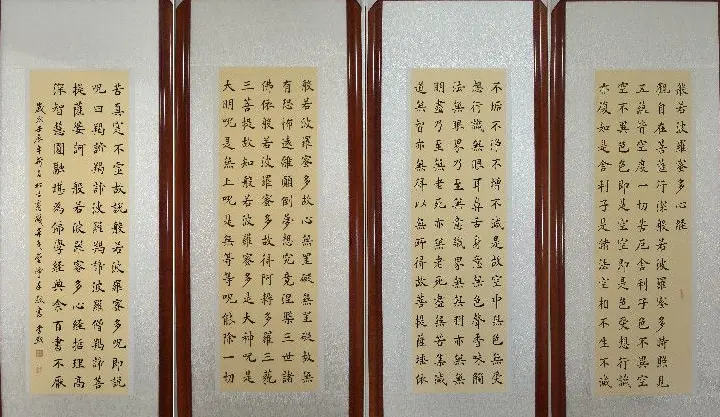 般若波羅蜜多心經
觀自在菩薩行深般若波羅蜜多時照見
五蘊皆空度一切苦厄舍利子色不異空
空不異色色即是空空即是色受想行識
亦復如是舍利子是諸法空相不生不滅
不垢不淨不增不減是故空中無色無受
想行識無眼耳鼻舌身意無色聲香味觸
法無眼界乃至無意識界無無明亦無無
明盡乃至無老死亦無老死盡無苦集滅
道無智亦無得以無所得故菩提薩埵依
般若波羅蜜多故心無罣礙無罣礙故無
有恐怖遠離顛倒夢想究竟涅槃三世諸
佛依般若波羅蜜多故得阿耨多羅三藐
三菩提故知般若波羅蜜多是大神呪是
大明呪是無上呪是無等等呪能除一切
苦真實不虛故說般若波羅蜜多呪即說
呪曰羯諦羯諦波羅羯諦波羅僧羯諦菩
提薩婆訶 般若波羅蜜多心經哲理高
深智慧圓融堪為佛學經典余百書不厭
歲次